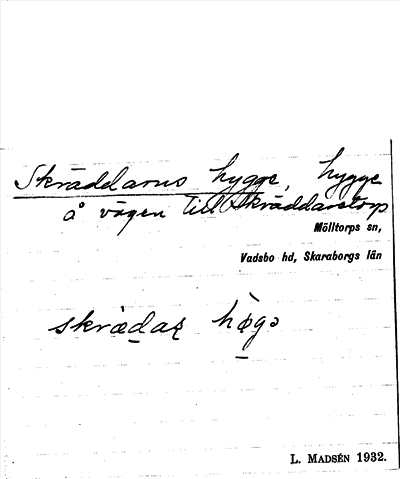 Skräddarns hygge, hygge
å vägen till Skräddaretorp
Mölltorps sn,
Vadsbo hd, Skaraborgs län
skræ̀daʀ hø̀gə
L. MADSÉN 1932.